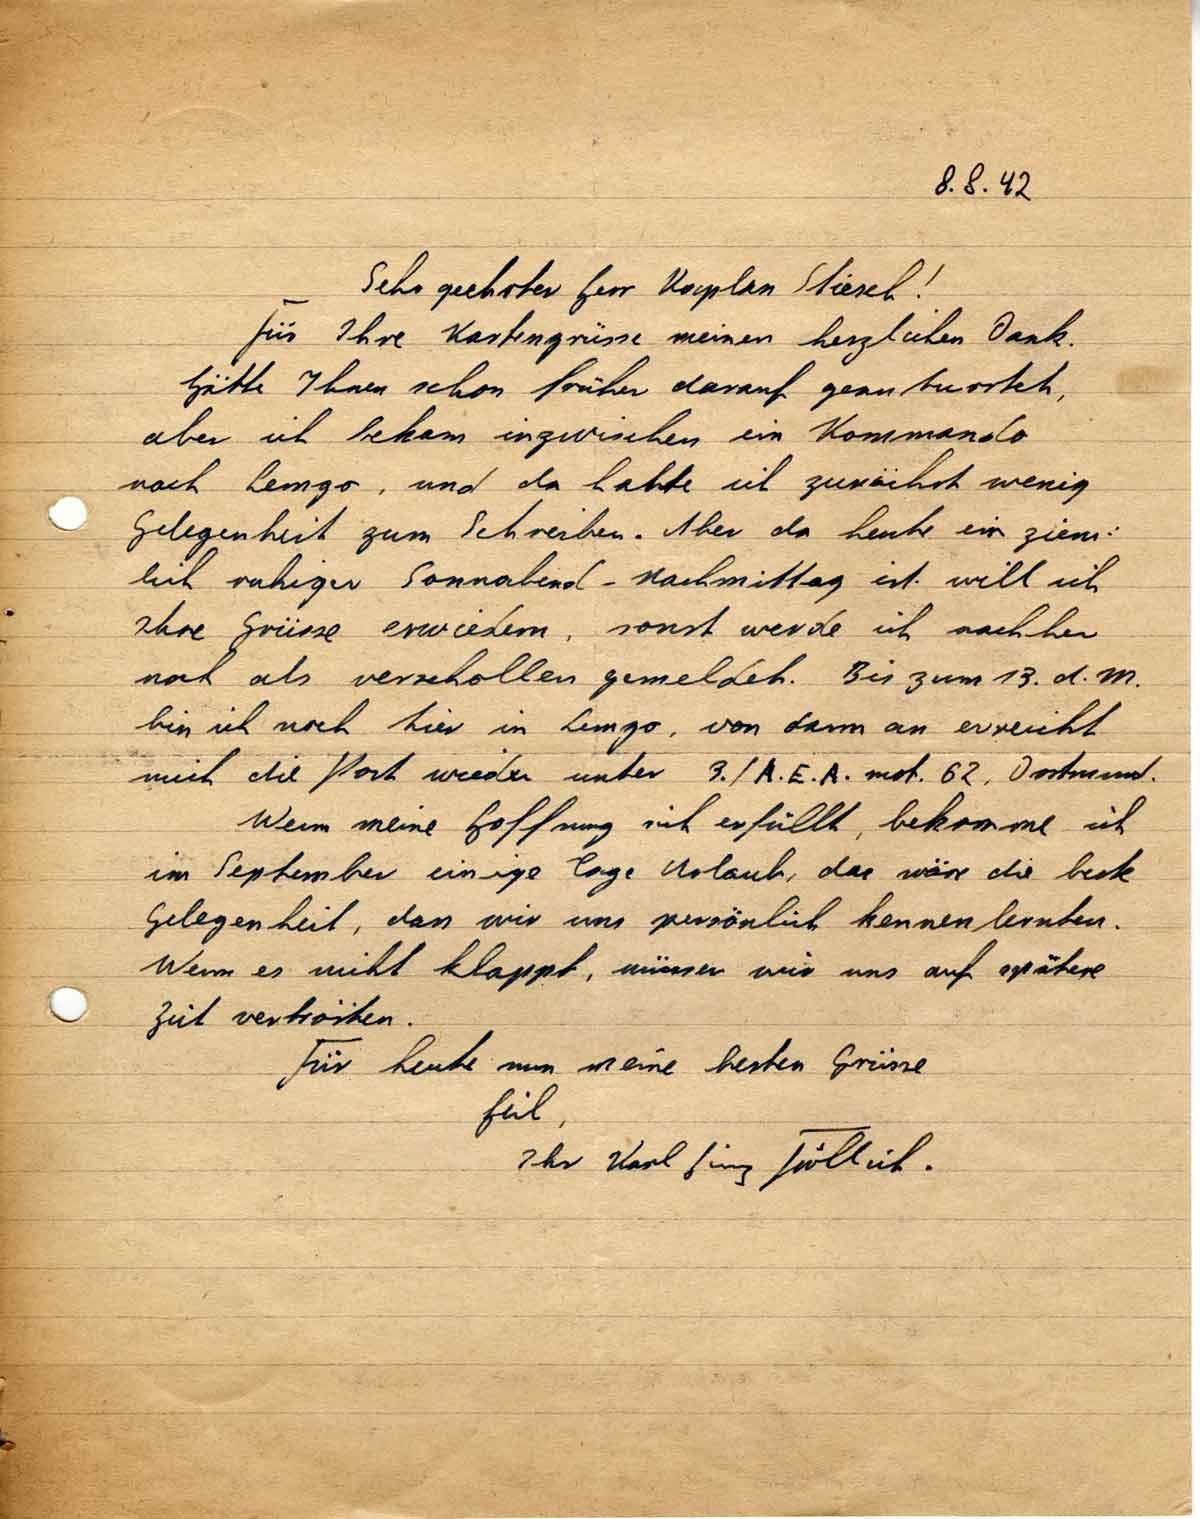 8.8.42
Sehr geehrter Herr Kaplan
Für Ihre Kartengrüsse meinen herzlichen Dank.
Hätte Ihnen schon früher darauf geantwortet,
aber ich bekam inzwischen ein Kommando
nach Lemgo, und da hatte ich zunächst wenig
Gelegenheit zum Schreiben. Aber da heute ein ziem:
lich ruhiger Sonnabend-Nachmittag ist will ich
Ihre Grüsse erwiedern, sonst werde ich nachher
noch als verschollen gemeldet. Bis zum 13. d. M.
bin ich noch hier in Lemgo, von dann an erreicht
mich die Post wieder unter 3./A.E.A. mot. 62, Dortmund.
Wenn meine Hoffnung sich erfüllt, bekomme ich
im September einige Tage Urlaub, das wäre die beste
Gelegenheit, dass wir uns persönlich kennenlernten.
Wenn es nicht klappt, müssen wir uns auf spätere
Zeit vertrösten.
Für heute nun meine besten Grüsse
Heil,
Ihr Karl Heinz